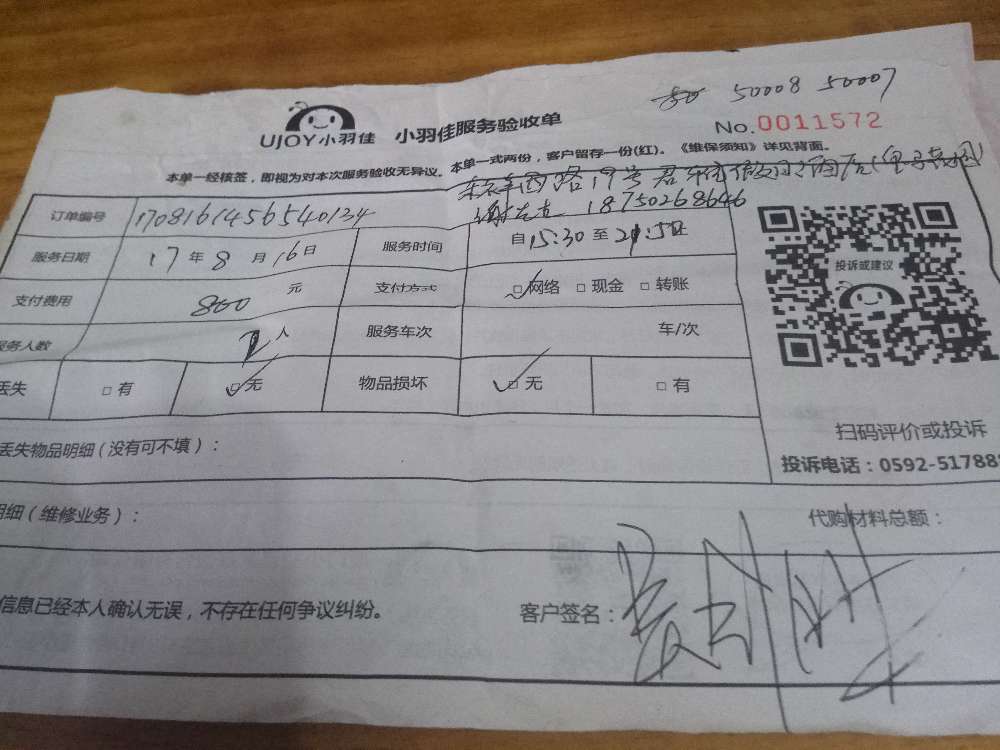 50008 50007
UJOY小羽佳 小羽佳服务验收单
No.0011572
本单一经核签，即视为对本次服务验收无异议。本单一式两份，客户留存一份(红)。《维保须知》详见背面。
西路19号君
18750268646
订单编号 170816145654 0134
服务日期 17年8月16日 服务时间 自15:30至21:5
支付费用 800元 支付方式 □网络 □现金 □转账
服务人数 2人 服务车次 车/次
丢失 □有 □无 物品损坏 □无 □有
投诉或建议
扫码评价或投诉
丢失物品明细（没有可不填）：
投诉电话：0592-517888
明细（维修业务）： 代购材料总额：
信息已经本人确认无误，不存在任何争议纠纷。 客户签名：